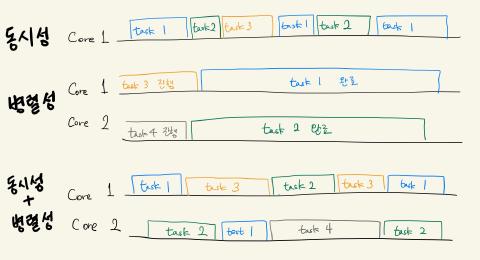 동시성 Core 1 task 1 task 2 task 3 task 1 task 2 task 1
병렬성 Core 1 task 3 진행 task 1 완료
Core 2 task 4 진행 task 2 완료
동시성 + 병렬성 Core 1 task 1 task 3 task 2 task 3 task 1
Core 2 task 2 tast 1 task 4 task 2